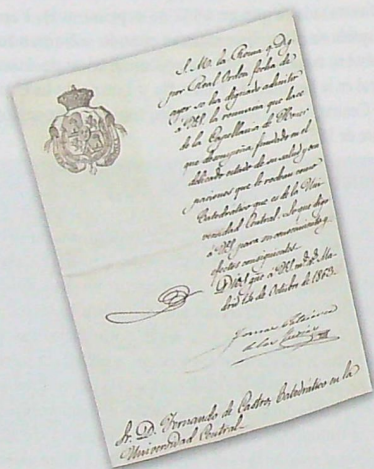 S. M. la Reina q. D. g.
por Real Orden fecha de
ayer se ha dignado admitir
á VS. la renuncia que hace
de la Capellanía de Honor
que desempeña, fundada en el
delicado estado de su salud y ocu-
paciones que le rodean como
Catedrático que es de la Uni-
versidad Central. Lo que digo
á VS. para su conocimiento y
efectos consiguientes.
Dios gue. á VS. ms. as. Ma-
drid 16 de Octubre de 1863.
Sr. D. Fernando de Castro, Catedrático en la
Universidad Central